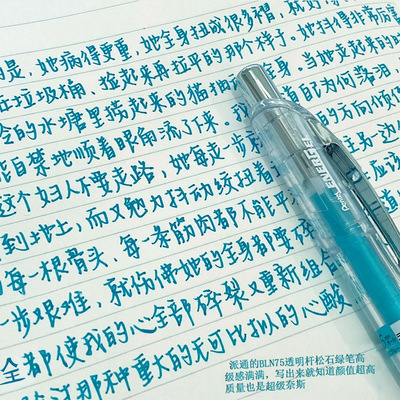 的是，她病得更重，她全身扭成很多褶，就
在垃圾桶，捡起来再拉平的那个样子。她抖得非常厉害
冷的水塘里捞起来的猫抽
身。当她走起来的
能自禁地顺着眼角流了下来。
道自己为何落泪，
这个妇人不要走路，她每走一步
的方向倾
到地上，而又勉力抖动绞扭着
应该
的每一根骨头、每一条筋肉都不能平
一步艰难，就伤佛她的全身都要碎
全都使我的心全部碎裂又重新组合
过那种重大的无可比拟的心酸
Pentel ENERGEL
派通的BLN75透明杆松石绿笔高
级感满满，写出来就知道颜值超高
质量也是超级奈斯